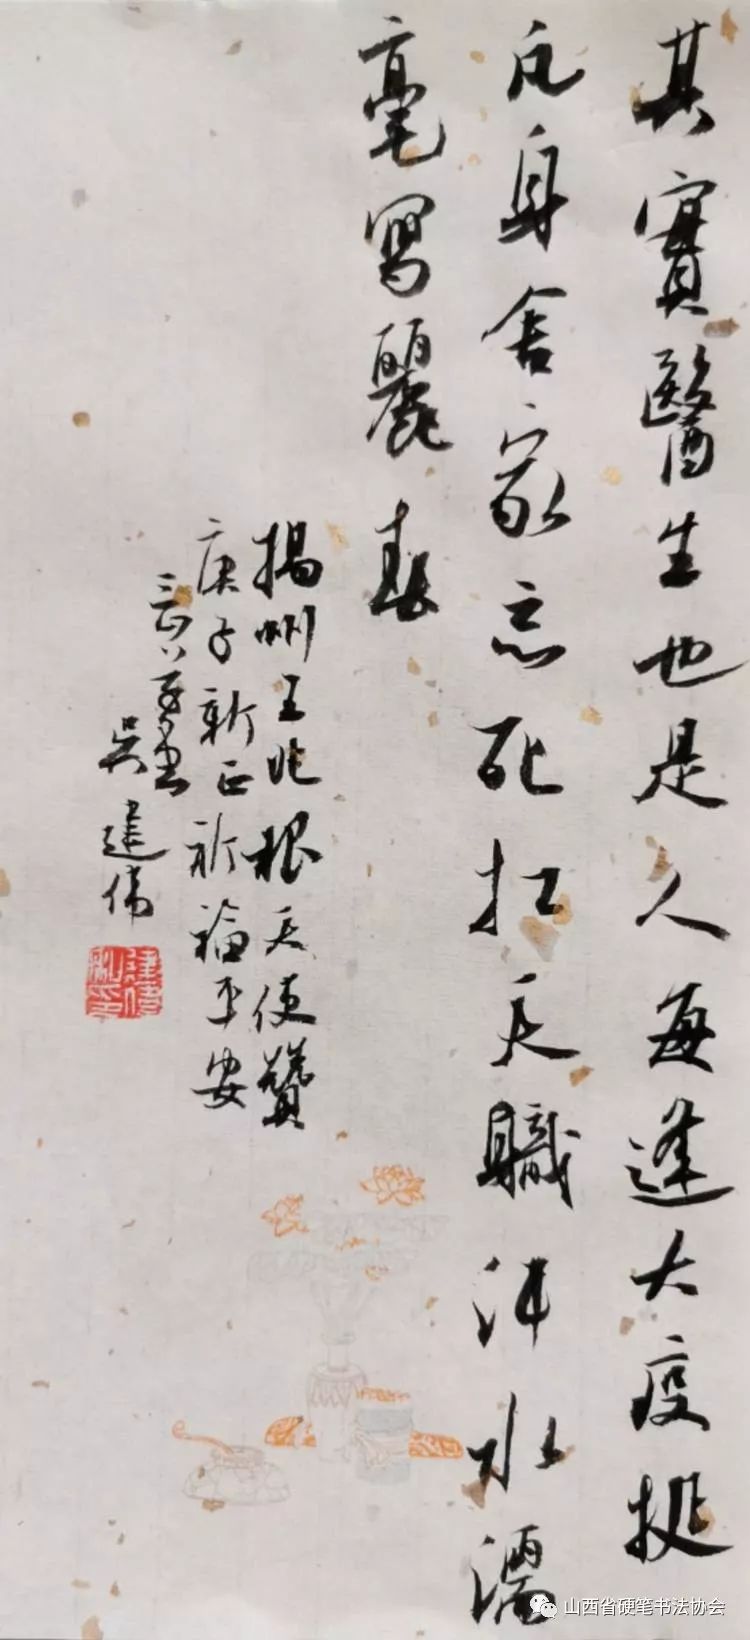 其實醫生也是人每逢大疫挺
凡身舍家忘死扛天職汗水濡
毫寫麗春
揚州王兆根天使贊
庚子新正祈福平安
吳建偉
山西省硬笔书法协会